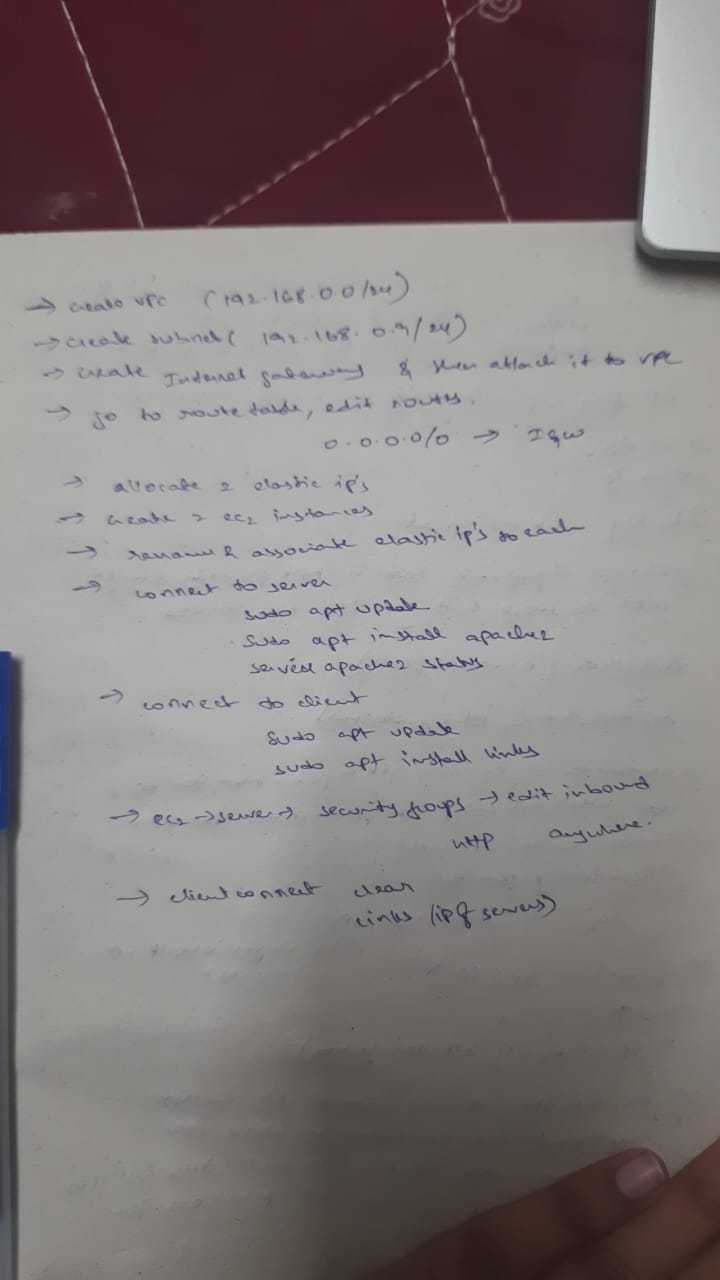 → create vpc (192.168.0.0/24)
→ create subnet ( 192.168.0.0/24)
→ create Internet gateway & then attach it to vpc
→ go to route table, edit routes.
0.0.0.0/0 → IGW
→ allocate 2 elastic ip's
→ create 2 ec2 instances
→ rename & associate elastic ip's to each
→ connect to server
sudo apt update
sudo apt install apache2
service apache2 status
→ connect to client
sudo apt update
sudo apt install links
→ ec2 → server → security groups → edit inbound
http anywhere.
→ client connect clear
links (ip of servers)